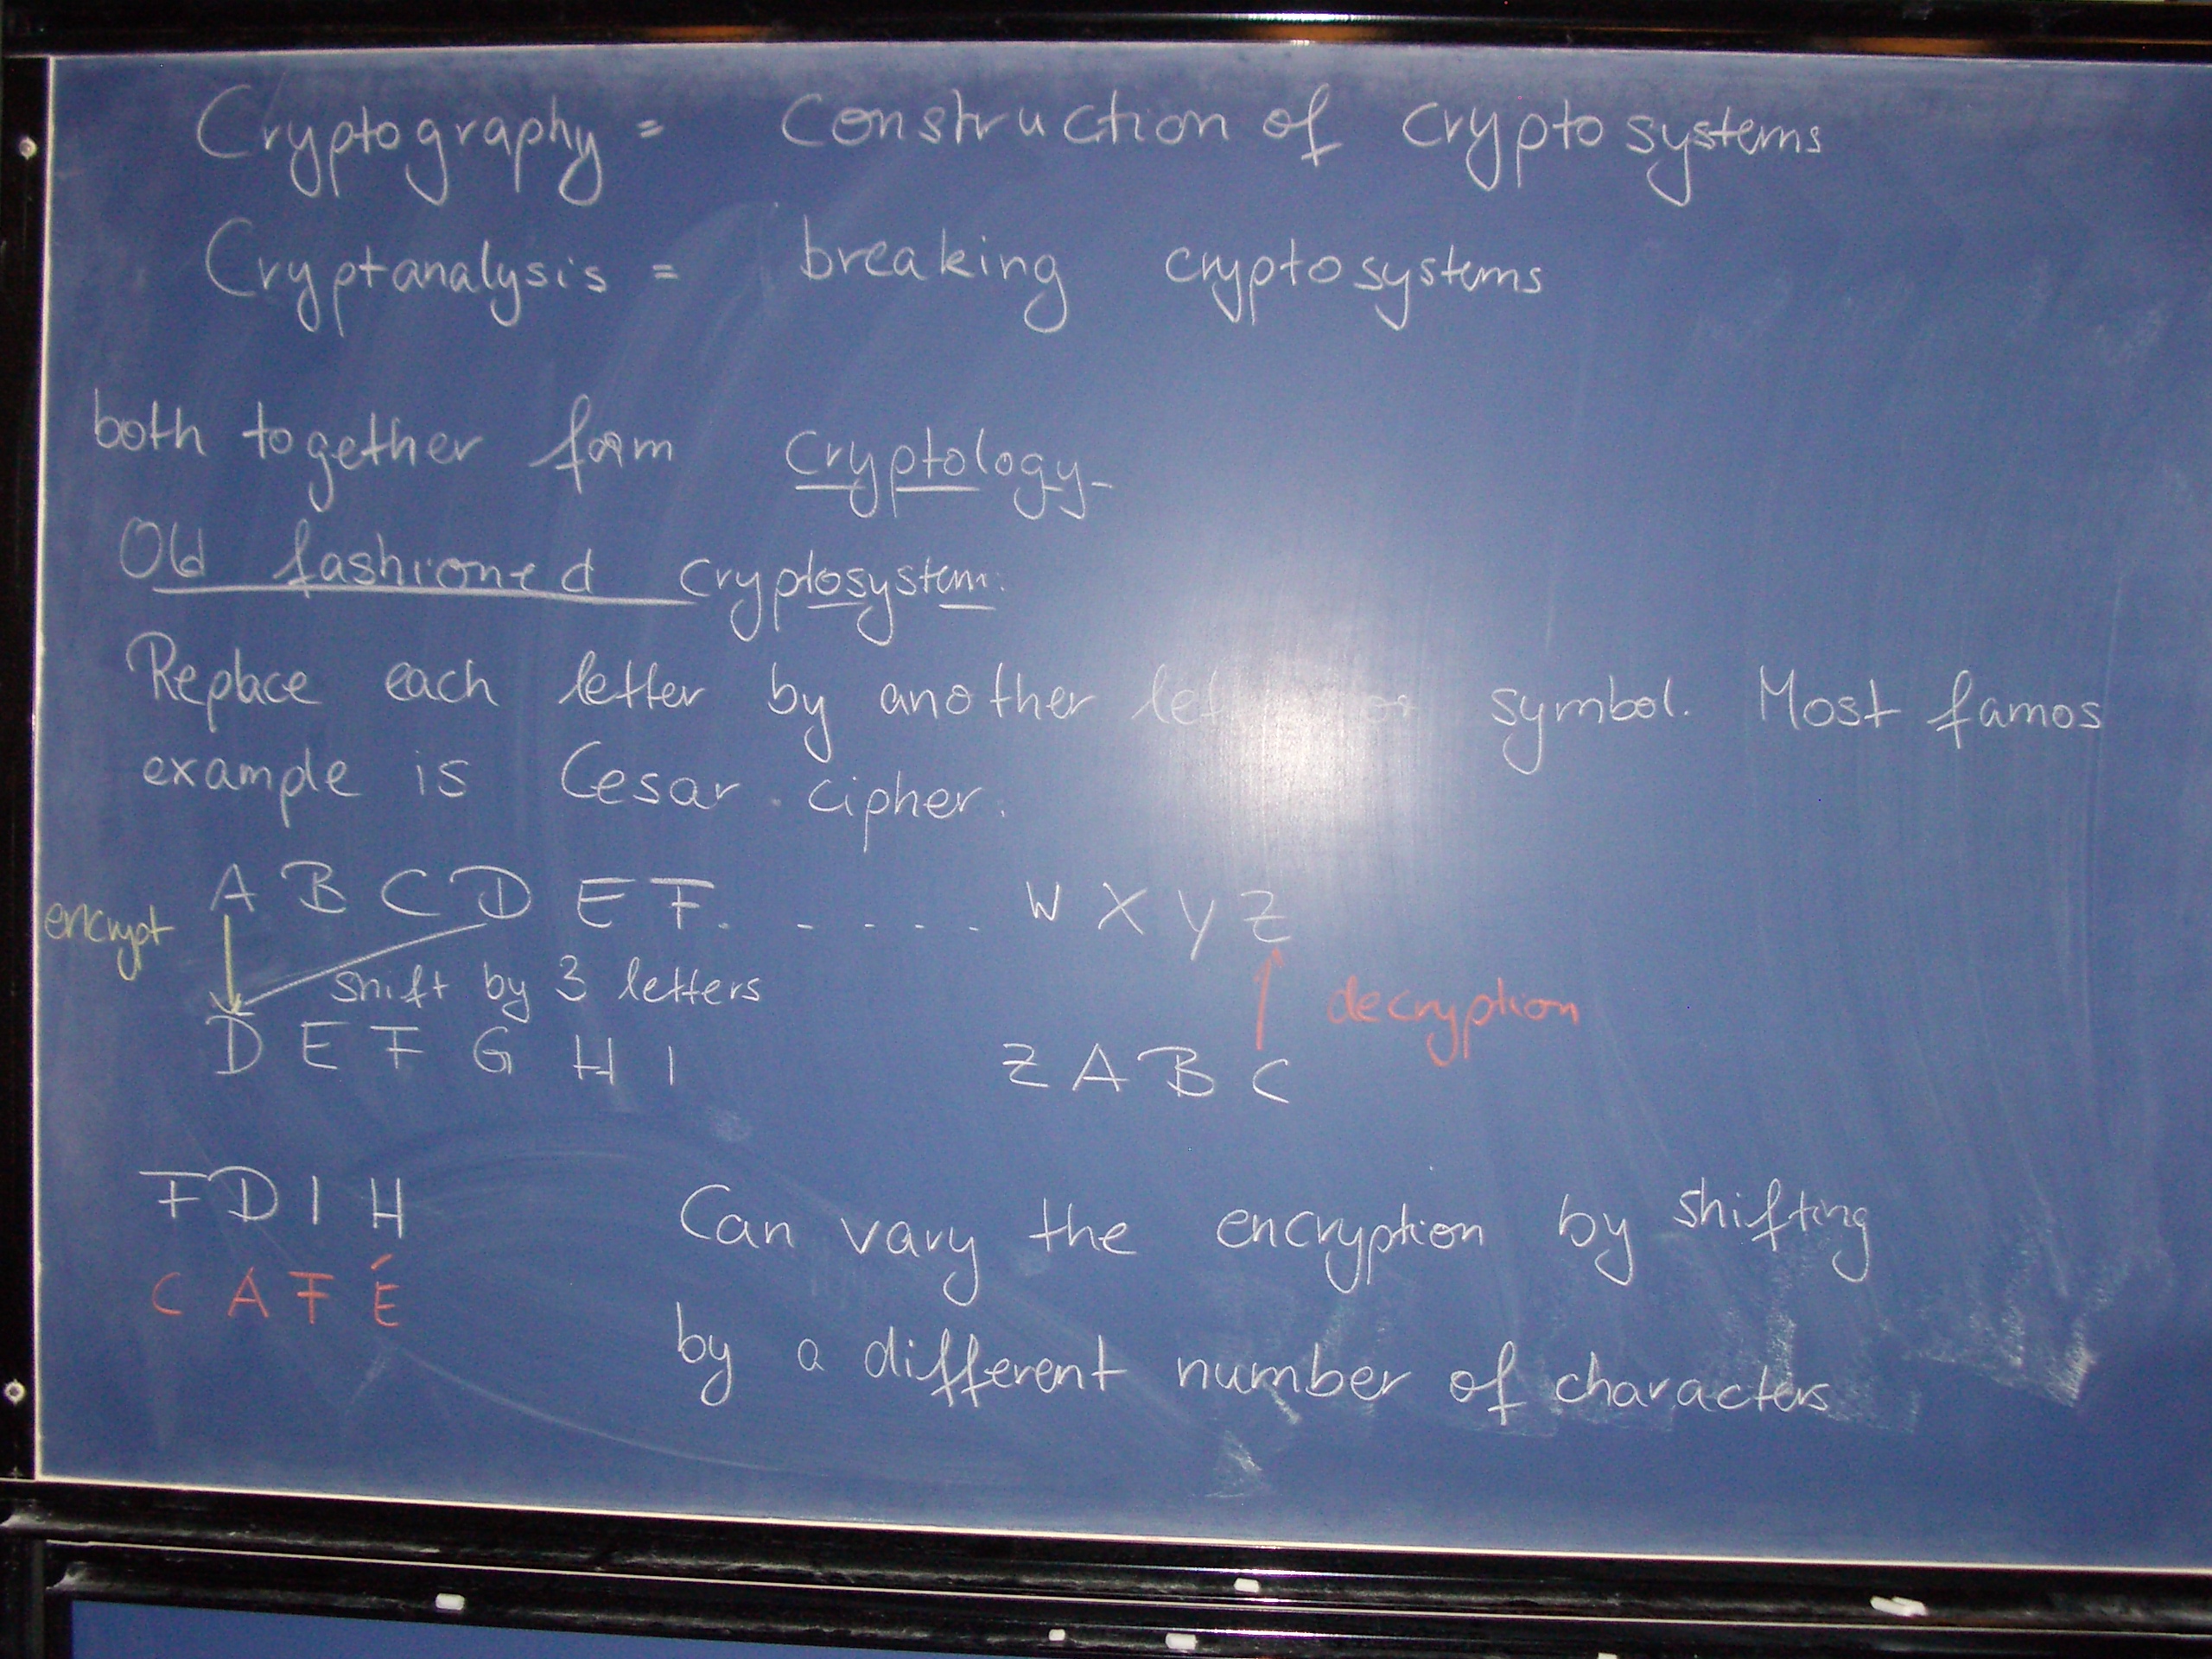 Cryptography = Construction of Cryptosystems
Cryptanalysis = breaking cryptosystems
both together form cryptology.
Old fashioned cryptosystem:
Replace each letter by another or symbol. Most famos
example is Cesar cipher.
A B C D E F . . . . . . W X Y Z
encrypt
shift by 3 letters
decryption
D E F G H I Z A B C
F D I H
C A F É
Can vary the encryption by shifting
by a different number of characters